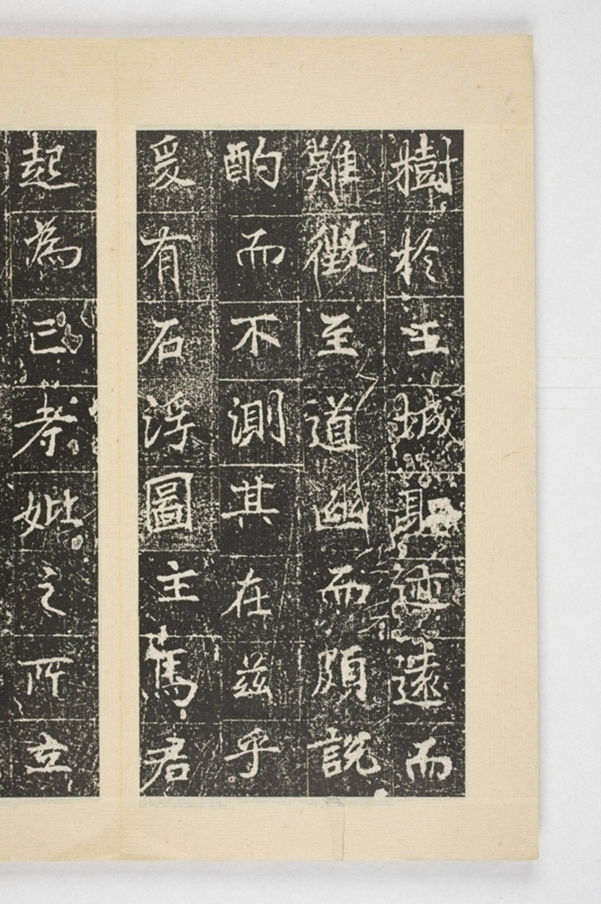 樹於王城迹遠而
難徵至道幽而頗說
酌而不測其在茲乎
爰有石浮圖主馬君
起為亡考妣之所立